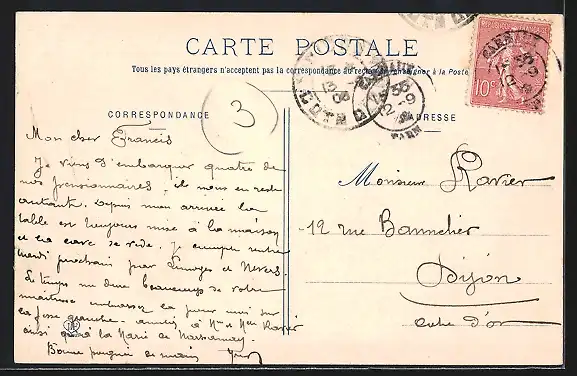 CARTE POSTALE
Tous les pays étrangers n'acceptent pas la correspondance au recto
à la Poste
CORRESPONDANCE
ADRESSE
3
10c
TARN
Mon cher Francis
Je viens d'embarquer quatre de
nos pensionnaires, il nous en reste
autant. Depuis mon arrivée la
table est toujours mise à la maison
et la cave se vide. Je compte rentrer
mardi prochain par Limoges et Nevers.
Le temps me dure beaucoup de votre
embrassez la pour moi sur
la fosse gauche. amitiés à Mr et Mme Ravier
ainsi qu'à la Marie de
Bonne poignée de main
Monsieur Ravier
12 rue Bannelier
Dijon
Côte d'Or